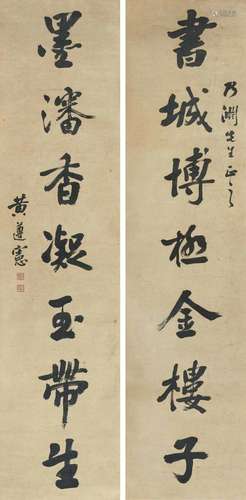 書城博極金樓子
先生正之
墨瀋香凝玉帶生
黃遵憲